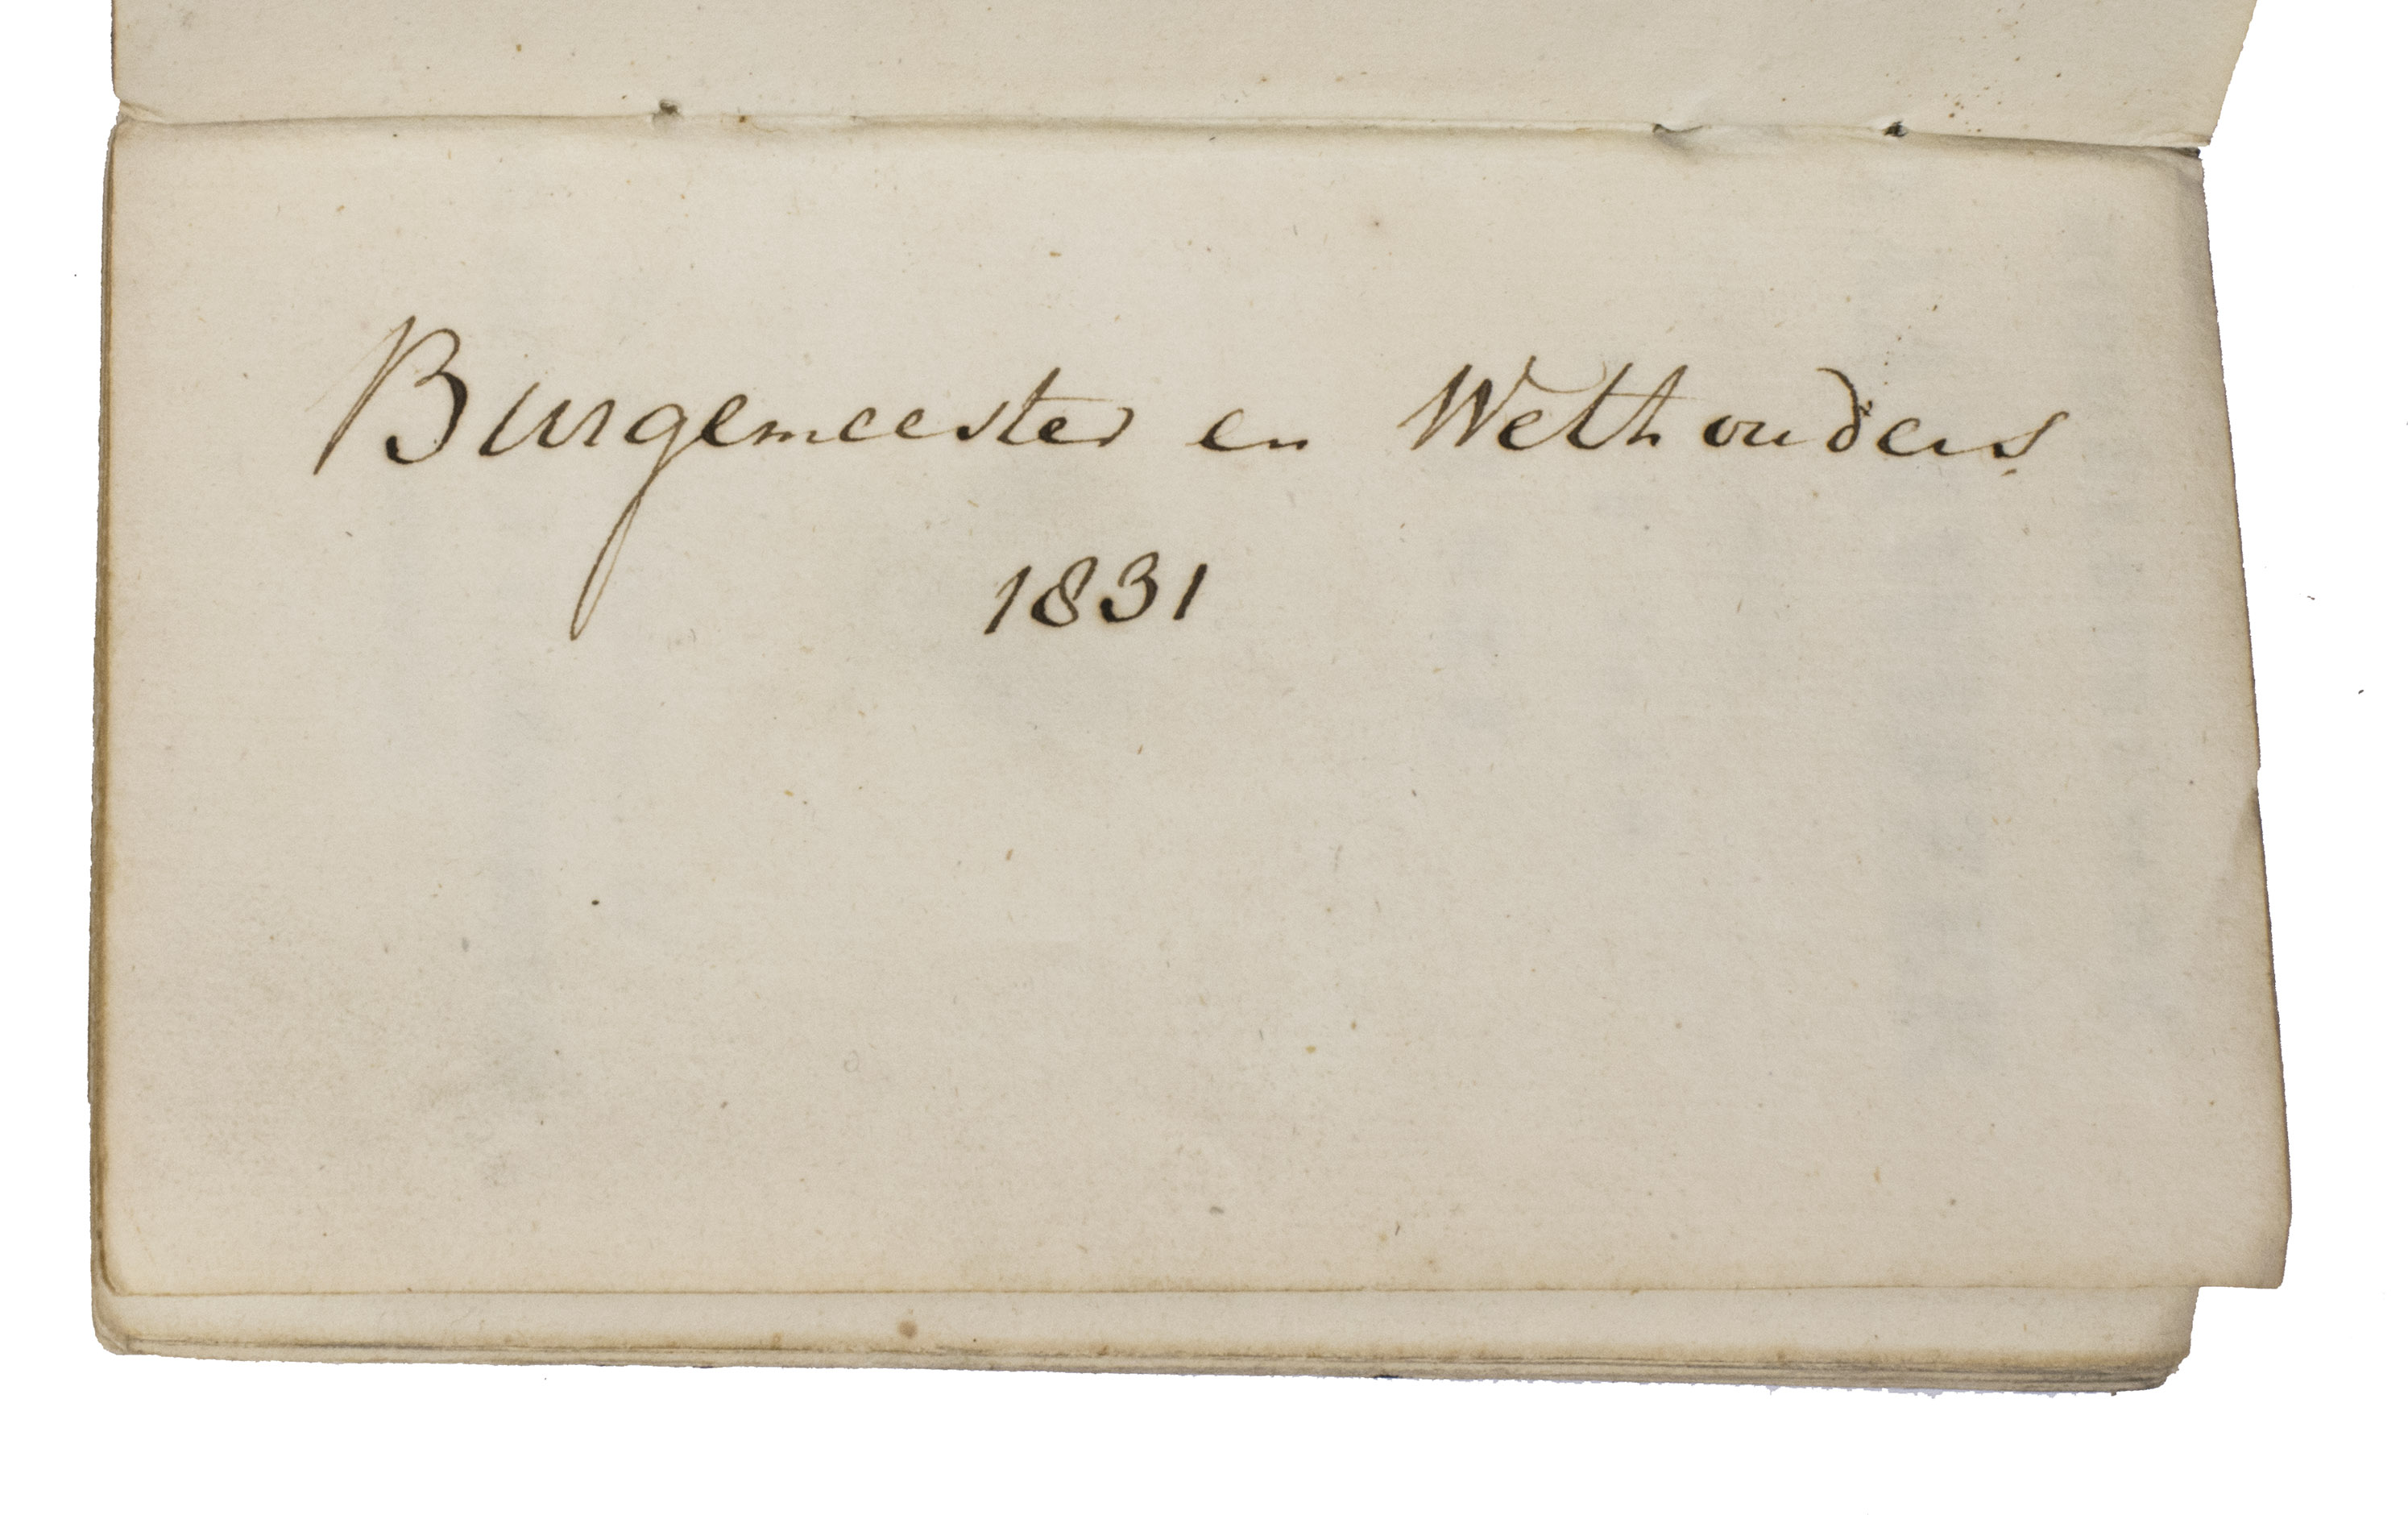 Burgemeester en Wethouders
1831